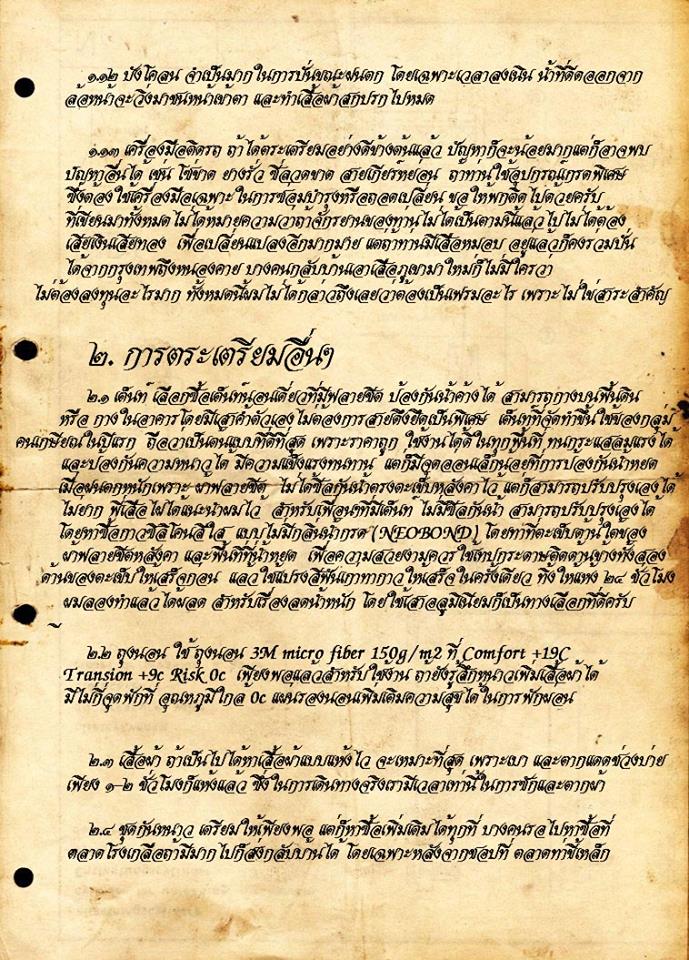 ๑.๑๒ บังโคลน จำเป็นมากในการปั่นขณะฝนตก โดยเฉพาะเวลาลงเนิน น้ำที่ดีดออกจาก
ล้อหน้าจะวิ่งมาชนหน้าเข้าตา และทำเสื้อผ้าสกปรกไปหมด
๑.๑๓ เครื่องมือติดรถ ถ้าได้ตระเตรียมอย่างดีข้างต้นแล้ว ปัญหาก็จะน้อยมากแต่ก็อาจพบ
ปัญหาอื่นได้ เช่น โซ่ขาด ยางรั่ว ซี่ลวดขาด สายเกียร์หย่อน ถ้าท่านใช้อุปกรณ์เกรดพิเศษ
ซึ่งต้องใช้เครื่องมือเฉพาะ ในการซ่อมบำรุงหรือถอดเปลี่ยน ขอให้พกติดไปด้วยครับ
ที่เขียนมาทั้งหมด ไม่ได้หมายความว่าถ้าจักรยานของท่านไม่ได้เป็นตามนี้แล้วไปไม่ได้ต้อง
เสียเงินเสียทอง เพื่อเปลี่ยนแปลงอีกมากมาย แต่ถ้าท่านมีเสือหมอบ อยู่แล้วก็คงร่วมปั่น
ได้จากกรุงเทพถึงหนองคาย บางคนกลับบ้านเอาเสือภูเขามาใหม่ก็ไม่มีใครว่า
ไม่ต้องลงทุนอะไรมาก ทั้งหมดนี้ผมไม่ได้กล่าวถึงเลยว่าต้องเป็นเฟรมอะไร เพราะไม่ใช่สาระสำคัญ
๒. การตระเตรียมอื่นๆ
๒.๑ เต็นท์ เลือกซื้อเต็นท์นอนเดี่ยวที่มีฟลายชีต ป้องกันน้ำค้างได้ สามารถกางบนพื้นดิน
หรือ กางในอาคารโดยมีเสาค้ำตัวเองไม่ต้องการสายดึงยึดเป็นพิเศษ เต็นท์ที่จัดทำขึ้นใช้ของกลุ่ม
คนเกษียณในปีแรก ถือว่าเป็นต้นแบบที่ดีที่สุด เพราะราคาถูก ใช้งานได้ดีในทุกพื้นที่ ทนกระแสลมแรงได้
และป้องกันความหนาวได้ มีความแข็งแรงทนทาน แต่ก็มีจุดอ่อนเล็กน้อยที่การป้องกันน้ำหยด
เมื่อฝนตกหนักเพราะ ผ้าฟลายชีต ไม่ได้ซีลกันน้ำตรงตะเข็บหลังคาไว้ แต่ก็สามารถปรับปรุงเองได้
ไม่ยาก พี่เสือใฝ่ได้แนะนำผมไว้ สำหรับเพื่อนที่มีเต็นท์ ไม่มีซีลกันน้ำ สามารถปรับปรุงเองได้
โดยหาซื้อกาวซิลิโคนสีใส แบบไม่มีกลิ่นน้ำกรด (NEOBOND) โดยทาที่ตะเข็บด้านใต้ของ
ผ้าฟลายชีตหลังคา และพื้นที่ที่น้ำหยด เพื่อความสวยงามควรใช้เทปกระดาษติดด้านข้างทั้งสอง
ด้านของตะเข็บให้เสร็จก่อน แล้วใช้แปรงสีฟันเก่าทากาวให้เสร็จในครั้งเดียว ทิ้งให้แห้ง ๒๔ ชั่วโมง
ผมลองทำแล้วได้ผลดี สำหรับเรื่องลดน้ำหนัก โดยใช้เสาอลูมิเนียมก็เป็นทางเลือกที่ดีครับ
๒.๒ ถุงนอน ใช้ถุงนอน 3M micro fiber 150g/m2 ที่ Comfort +19C
Transion +9c Risk 0c เพียงพอแล้วสำหรับใช้งาน ถ้ายังรู้สึกหนาวเพิ่มเสื้อผ้าได้
มีไม่กี่จุดพักที่ อุณหภูมิใกล้ 0c แผ่นรองนอนเพิ่มเติมความสุขได้ในการพักผ่อน
๒.๓ เสื้อผ้า ถ้าเป็นไปได้หาเสื้อผ้าแบบแห้งไว จะเหมาะที่สุด เพราะเบา และตากแดดช่วงบ่าย
เพียง ๑-๒ ชั่วโมงก็แห้งแล้ว ซึ่งในการเดินทางจริงเรามีเวลาเท่านี้ในการซักและตากผ้า
๒.๔ ชุดกันหนาว เตรียมให้เพียงพอ แต่ก็หาซื้อเพิ่มเติมได้ทุกที่ บางคนรอไปหาซื้อที่
ตลาดโรงเกลือถ้ามีมากไปก็ส่งกลับบ้านได้ โดยเฉพาะหลังจากชอปที่ ตลาดท่าขี้เหล็ก